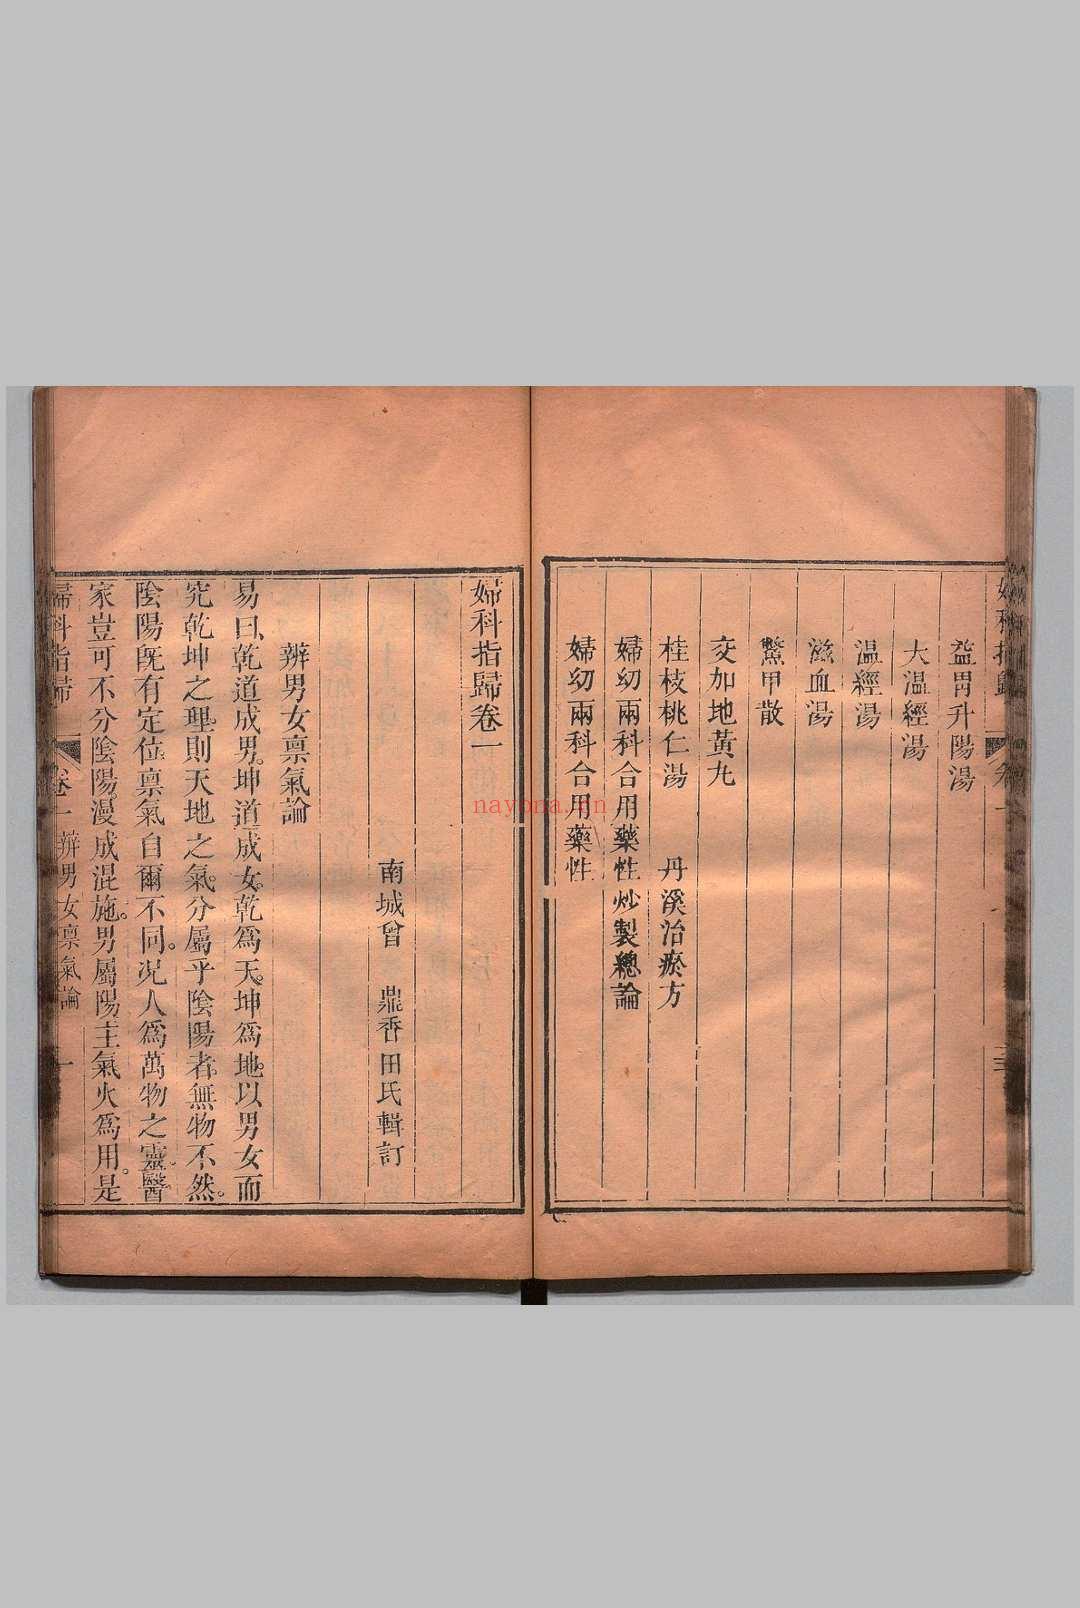 婦科指歸 卷一
益胃升陽湯
大温經湯
温經湯
滋血湯
鱉甲散
交加地黃丸
桂枝桃仁湯 丹溪治瘀方
婦幼兩科合用藥性炒製總論
婦幼兩科合用藥性
婦科指歸卷一
南城曾 鼎香田氏輯訂
辨男女禀氣論
易曰、乾道成男。坤道成女。乾爲天。坤爲地。以男女而
究乾坤之理。則天地之氣。分屬乎陰陽者。無物不然。
陰陽旣有定位。禀氣自爾不同。况人爲萬物之靈。醫
家豈可不分陰陽。漫成混施。男屬陽主氣火爲用。是
婦科指歸 卷一 辨男女禀氣論 一
nayona.cn